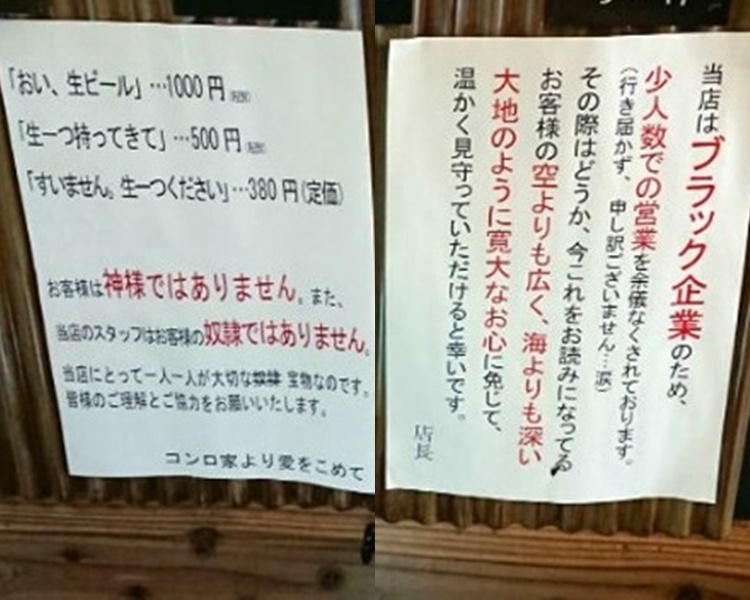 「おい、生ビール」…1000円
「生一つ持ってきて」…500円
「すいません。生一つください」…380円(定価)
お客様は神様ではありません。また、
当店のスタッフはお客様の奴隷ではありません。
当店にとって一人一人が大切な奴隷 宝物なのです。
皆様のご理解とご協力をお願いいたします。
コンロ家より愛をこめて
当店はブラック企業のため、
少人数での営業を余儀なくされております。
(行き届かず、申し訳ございません…涙)
その際はどうか、今これをお読みになってる
お客様の空よりも広く、海よりも深い
大地のように寛大なお心に免じて、
温かく見守っていただけると幸いです。
店長